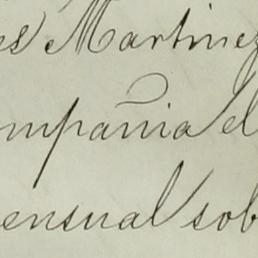 es Martinez
ompañia el
ensual sob